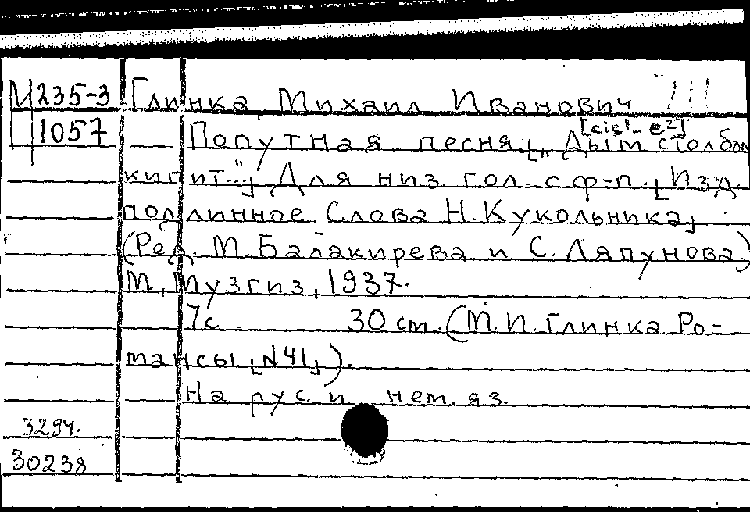 М 235-3 Глинка, Михаил Иванович
1057 Попутная песня. [„Дым столбом [cis¹-e²]
кипит..."] Для низ. гол. с ф-п. [Изд.
подлинное. Слова Н. Кукольника]
(Ред. М. Балакирева и С. Ляпунова)
М., Музгиз, 1937.
7с. 30 cm. (М. И. Глинка. Ро-
мансы, [№41]).
На рус. и нем. яз.
3294.
30238